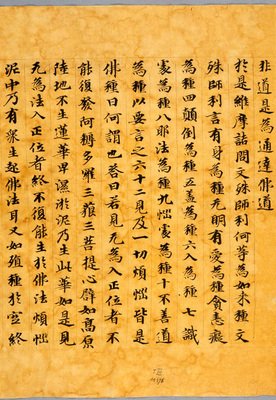 非道是為通達佛道
於是維摩詰問文殊師利何等為如来種文
殊師利言有身為種无明有愛為種貪恚癡
為種四顛倒為種五盖為種六入為種七識
處為種八耶法為種九惱處為種十不善道
為種以要言之六十二見及一切煩惱皆是
佛種曰何謂也荅曰若見无為入正位者不
能復發阿耨多羅三藐三菩提心辟如高原
陸地不生蓮華卑濕淤泥乃生此華如是見
无為法入正位者終不復能生於佛法煩惱
泥中乃有衆生起佛法耳又如殖種於空終